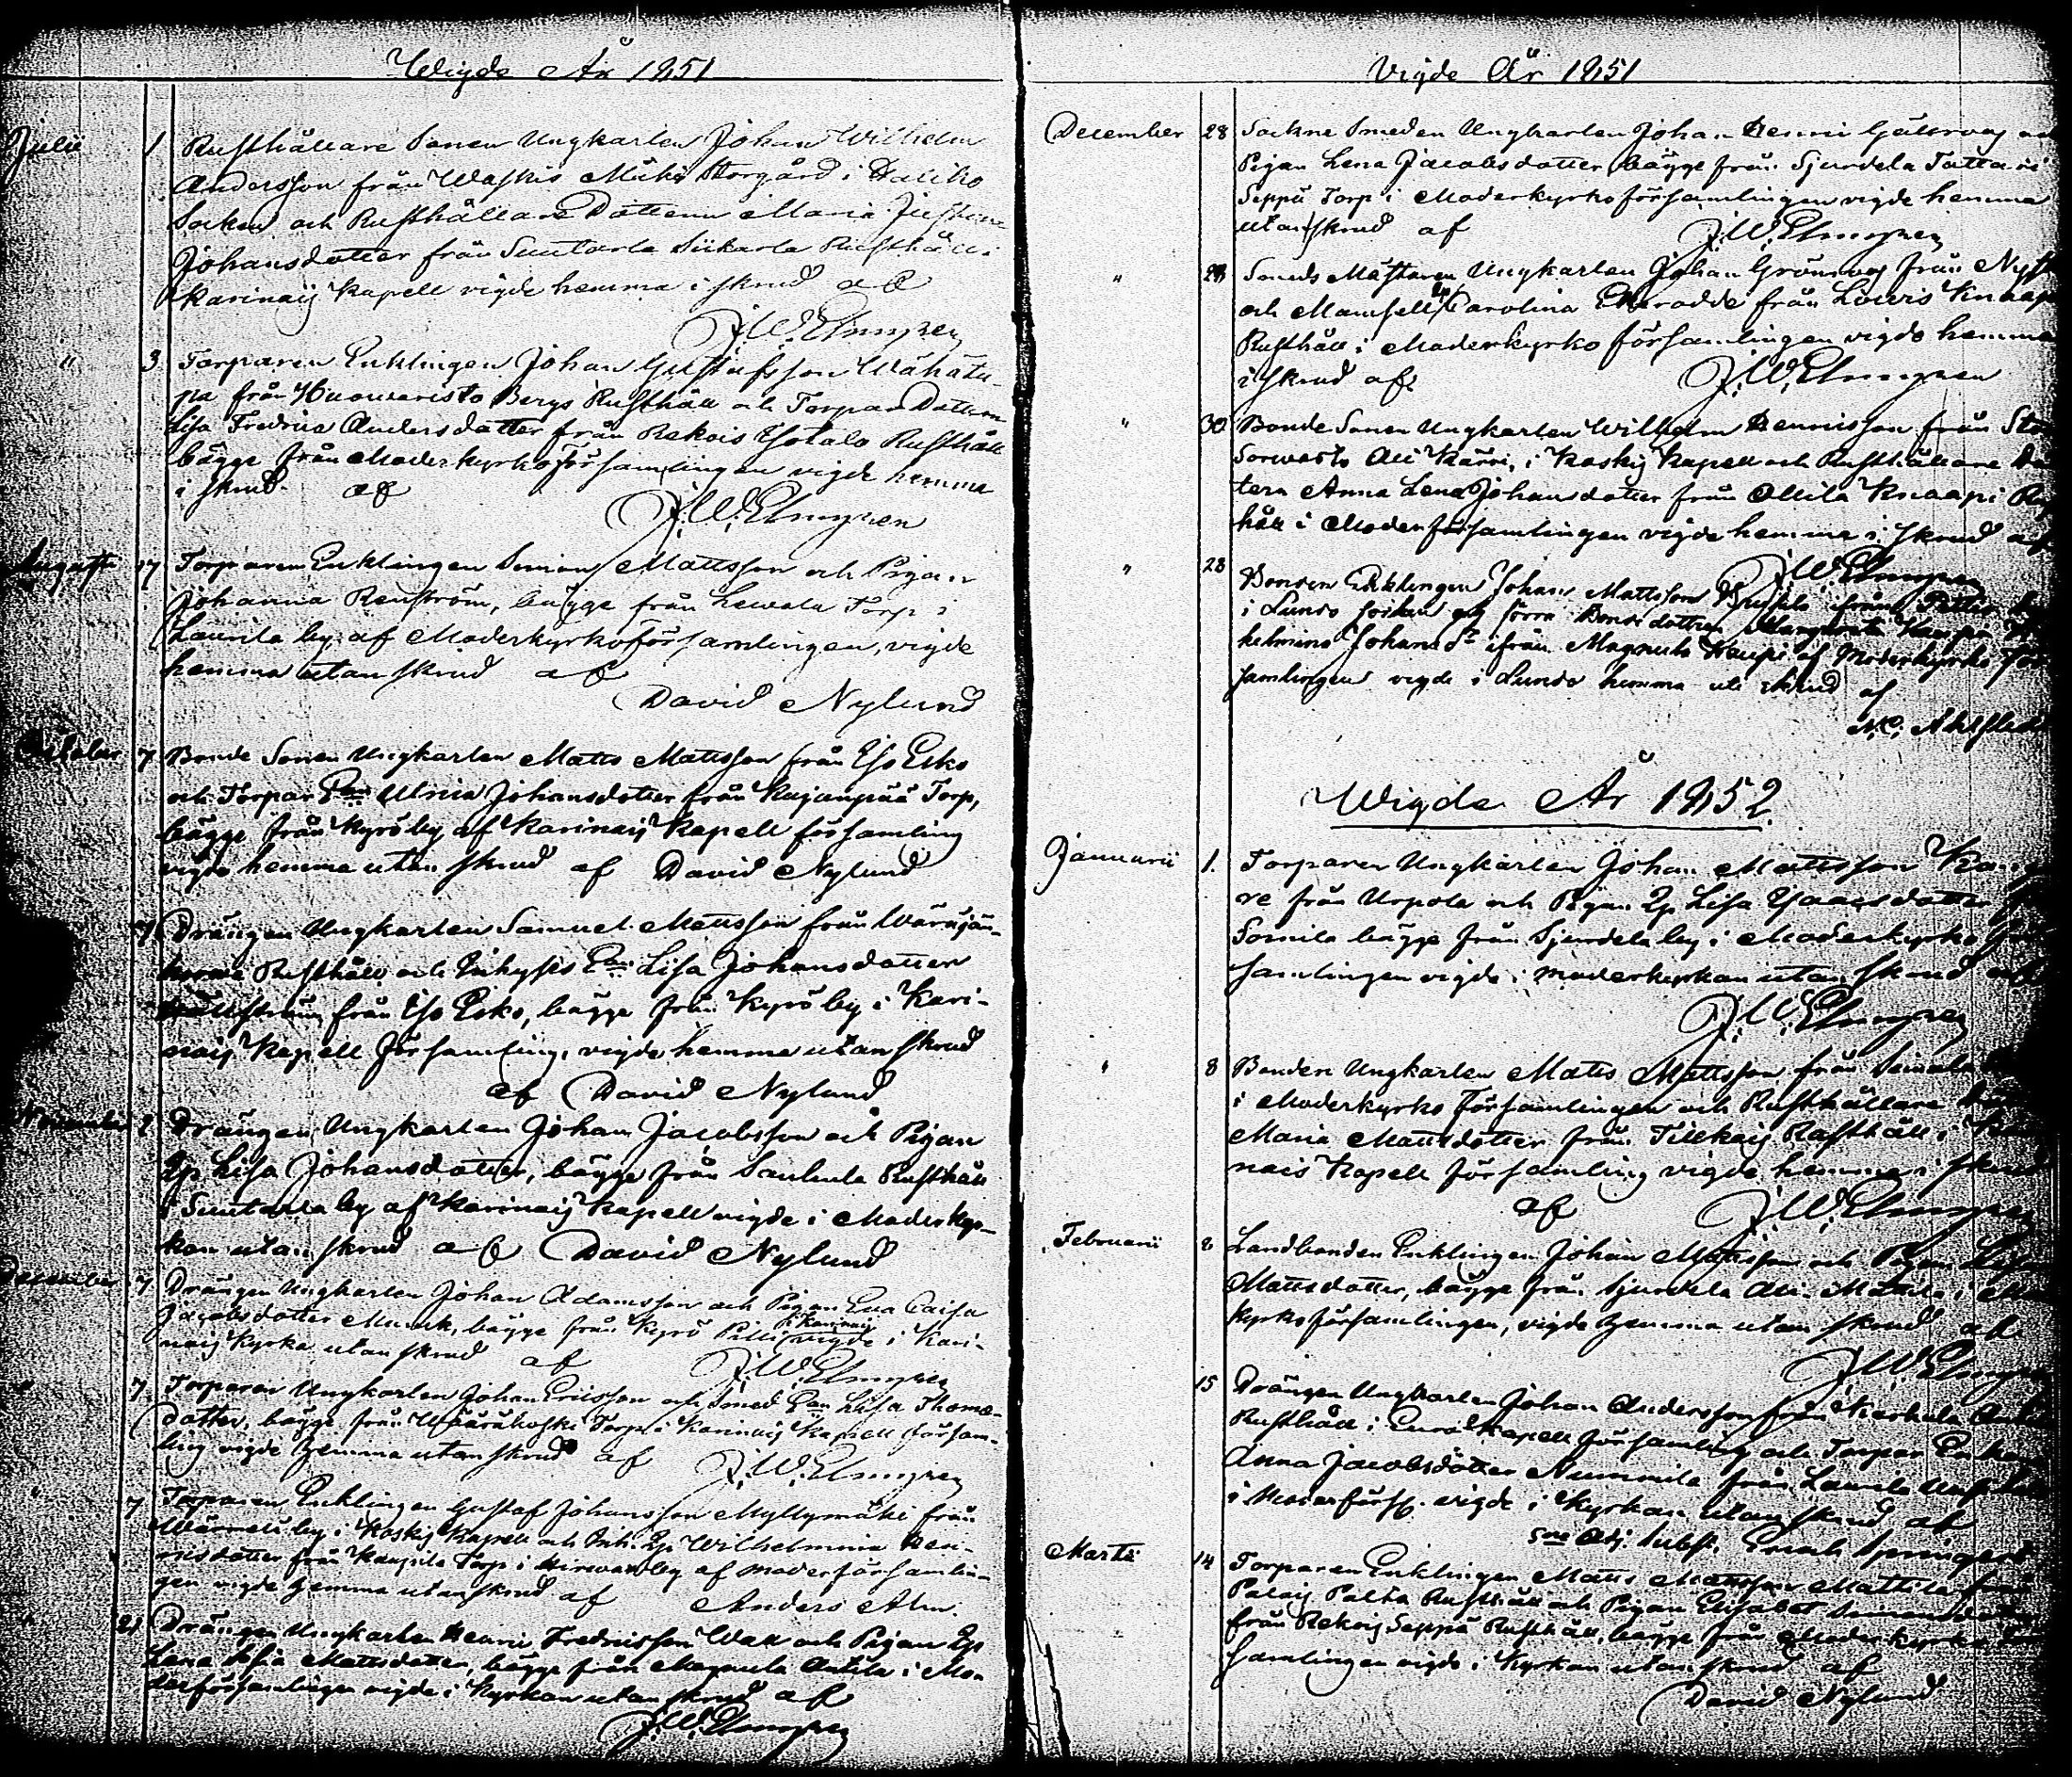 Wigde År 1851
Julii 1 Rusthållare Sonen Ungkarlen Johan Wilhelm
Andersson från Waskis Mäki Storgård i Haliko
Socken och Rusthållare Dottern Maria Justina
Johansdotter från Suutarla Siikarla Rusthåll i
Karinais Kapell vigde hemma i skrud af
J. W. Elmgren
" 3 Torparen Enklingen Johan Gustafsson Wähäta-
pa från Huowaristo Bergs Rusthåll och Torpar Dottern
Lisa Fredrica Andersdotter från Rekois Isotalo Rusthåll
bägge från Moderkyrkoförsamlingen vigde hemma
i skrud af
J. W. Elmgren
Augusti 17 Torparen Enklingen Simon Mattsson och Pigan
Johanna Renström, bägge från Lewala Torp i
Laurila by, af Moderkyrkoförsamlingen, vigde
hemma utan skrud af
David Nylund
October 7 Bonde Sonen Ungkarlen Matts Mattsson från Iso Esko
och Torpar Ulrica Johansdotter från Kujanpää Torp,
bägge från Kyrö by, af Karinais Kapell församling
vigde hemma utan skrud af David Nylund
7 Drängen Ungkarlen Samuel Mattsson från
Rusthåll och Inhyses Lisa Johansdotter
från Iso Esko, bägge från Kyrö by i Kari-
nais Kapell församling, vigde hemma utan skrud
af David Nylund
November 2 Drängen Ungkarlen Johan Jacobsson och Pigan
Ep Lisa Johansdotter, bägge från Saukula Rusthåll
i Suutarla by af Karinais Kapell vigde i Moderkyr-
kan utan skrud af David Nylund
December 7 Drängen Ungkarlen Johan Adamsson och Pigan Eva Caisa
Jacobsdotter Munck, bägge från Kyrö Pilli i Karinais vigde i Kari-
nais Kyrka utan skrud af
J. W. Elmgren
" 7 Torparen Ungkarlen Johan Ericsson och Smed Lisa Thomæ-
dotter, bägge från Torp i Karinais Kapell försam-
ling vigde hemma utan skrud af J. W. Elmgren
" 7 Torparen Enklingen Gustaf Johansson Myllymäki från
by i Koskis Kapell och Inh. Ep Wilhelmina Hen-
ricsdotter från Kaupila Torp i by af moderförsamlin-
gen vigde hemma utan skrud af Anders Alm.
" 21 Drängen Ungkarlen Henric Fredricsson Wall och Pigan Ep
Lena Lisa Mattsdotter, bägge från Magnula Antila i Mo-
derförsamlingen vigde i Kyrkan utan skrud af
J. W. Elmgren
Vigde År 1851
December 28 Sockne Smeden Ungkarlen Johan Henric och
Pigan Lena Jacobsdotter bägge från Sjurdela Tattari
Seppä Torp i Moderkyrkoförsamlingen vigde hemma
utan skrud af J. W. Elmgren
" 28 Smeds Mästaren Ungkarlen Johan Grönroos från
och Mamsell Ep Carolina från Louvis Knaapi
Rusthåll i Moderkyrko församlingen vigde hemma
i skrud af J. W. Elmgren
" 30 Bonde Sonen Ungkarlen Wilhelm Henricsson från
Sorwasto Ali Kärri, i Koskis Kapell och Rusthållare
tern Anna Lena Johansdotter från Ollila Knaapi
håll i Moderförsamlingen vigde hemma i skrud af
J. W. Elmgren
" 28 Bonden Enklingen Johan Mattsson ifrån
i Lundo socken och förra Bonde dottren Margareta
helmina Johansdr ifrån Magnula Kaupi af Moderkyrko för
samlingen vigde i Lundo hemma utí skrud af
Wigde År 1852
Januarii 1. Torparen Ungkarlen Johan Mattsson
re från Urpola och Pigan Ep Lisa Isaacsdotter
Sornila bägge från Sjurdela by i Moderkyrko för
samlingen vigde i moderkyrkan utan skrud af
J. W. Elmgren
" 8 Bonden Ungkarlen Matts Mattsson från
i Moderkyrko församlingen och Rusthållare
Maria Mattsdotter från Tillkais Rusthåll i
nais Kapell församling vigde hemma i skrud
af J. W. Elmgren
Februarii 8 Landbonden Enklingen Johan Mattsson och Pigan
Mattsdotter, bägge från Sjurdela Ali Mattila i
kyrkoförsamlingen, vigde hemma utan skrud af
J. W. Elmgren
15 Drängen Ungkarlen Johan Andersson från
Rusthåll i Eura Kapell församling och Torpar Enkan
Anna Jacobsdotter Nummila från Laurila
i Moderförs. vigde i Kyrkan utan skrud af
Adj. subst. Enoch
Martii 14 Torparen Enklingen Matts Mattsson Mattila från
Palais Palta Rusthåll och Pigan Elisabet
från Rekois Seppä Rusthåll, bägge från Moderkyrko
samlingen vigde i Kyrkan utan skrud af
David Nylund